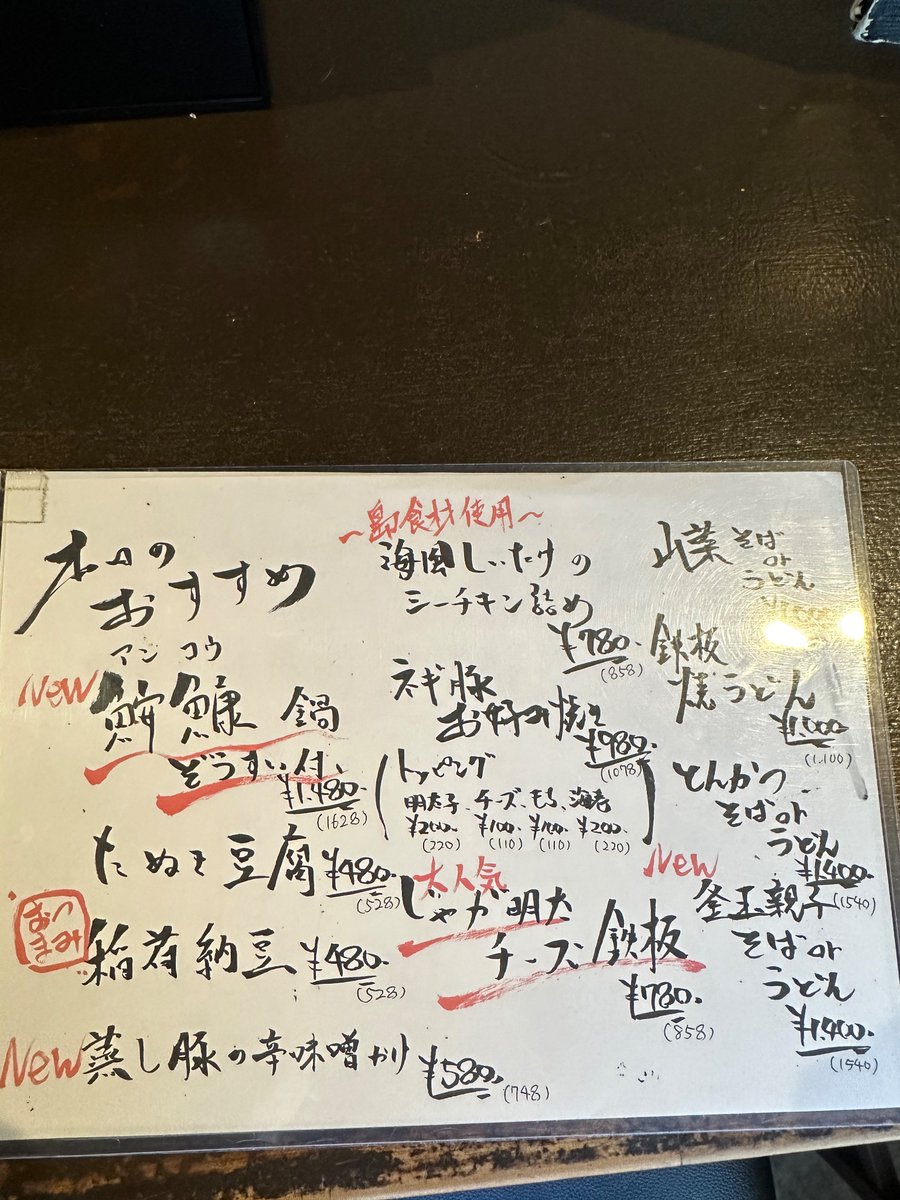 本日の
おすすめ
New
アンコウ
鮟鱇鍋
ぞうすい付
¥1,480-
(1628)
たぬき豆腐 ¥480-
(528)
おつまみ
稲荷納豆 ¥480-
(528)
New 蒸し豚の辛味噌かけ ¥580-
(748)
〜島食材使用〜
海風しいたけの
シーチキン詰め
¥780-
(858)
ネギ豚
お好み焼き
¥980-
(1078)
トッピング
明太子、チーズ、もち、海老
¥200- ¥100- ¥100- ¥200-
(220) (110) (110) (220)
大人気
じゃが明太
チーズ鉄板
¥780-
(858)
山菜そば
or
うどん
鉄板
焼うどん
¥1,000-
(1,100)
とんかつ
そばor
うどん
¥1,400-
(1540)
New
釜玉親子
そばor
うどん
¥1,400-
(1540)